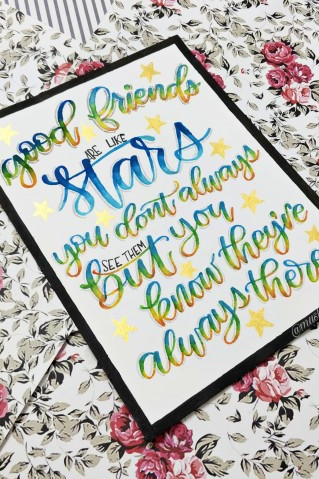 good friends
ARE LIKE
stars
you dont always
SEE THEM
but you
know they're
always there